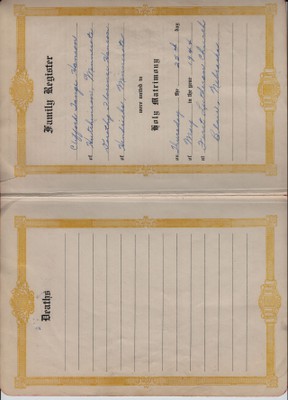 Family Register
Clifford George Hanson
of Hutchinson, Minnesota
Dorothy Hanson
of Hendricks, Minnesota
were united in
Holy Matrimony
on Thursday the 22nd day
of May in the year
of First Lutheran Church
Nebraska
Deaths